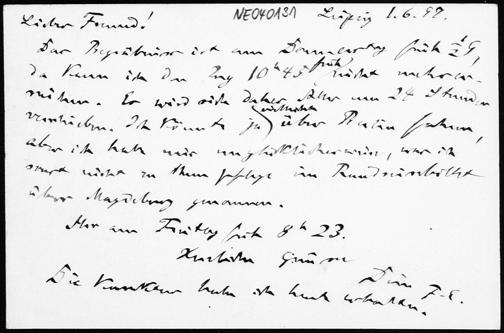 NE040131
Leipzig 1.6.97.
Lieber Freund!
Das Begräbnis ist am Donnerstag früh ½9,
da kann ich den Zug 10ʰ45 früh nicht mehr er-
reichen. Es wird sich daher Alles um 24 Stunden
verschieben. Ich könnte ja vielleicht über Berlin fahren,
aber ich habe mir unglücklicherweise, was ich
sonst nicht zu thun pflege im Rundreisebillet
über Magdeburg genommen.
Also am Freitag früh 8ʰ 23.
Herzliche Grüsse
Dein F. E.
Die Karten habe ich noch erhalten.